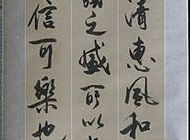 清惠風和
之盛所以
信可樂也